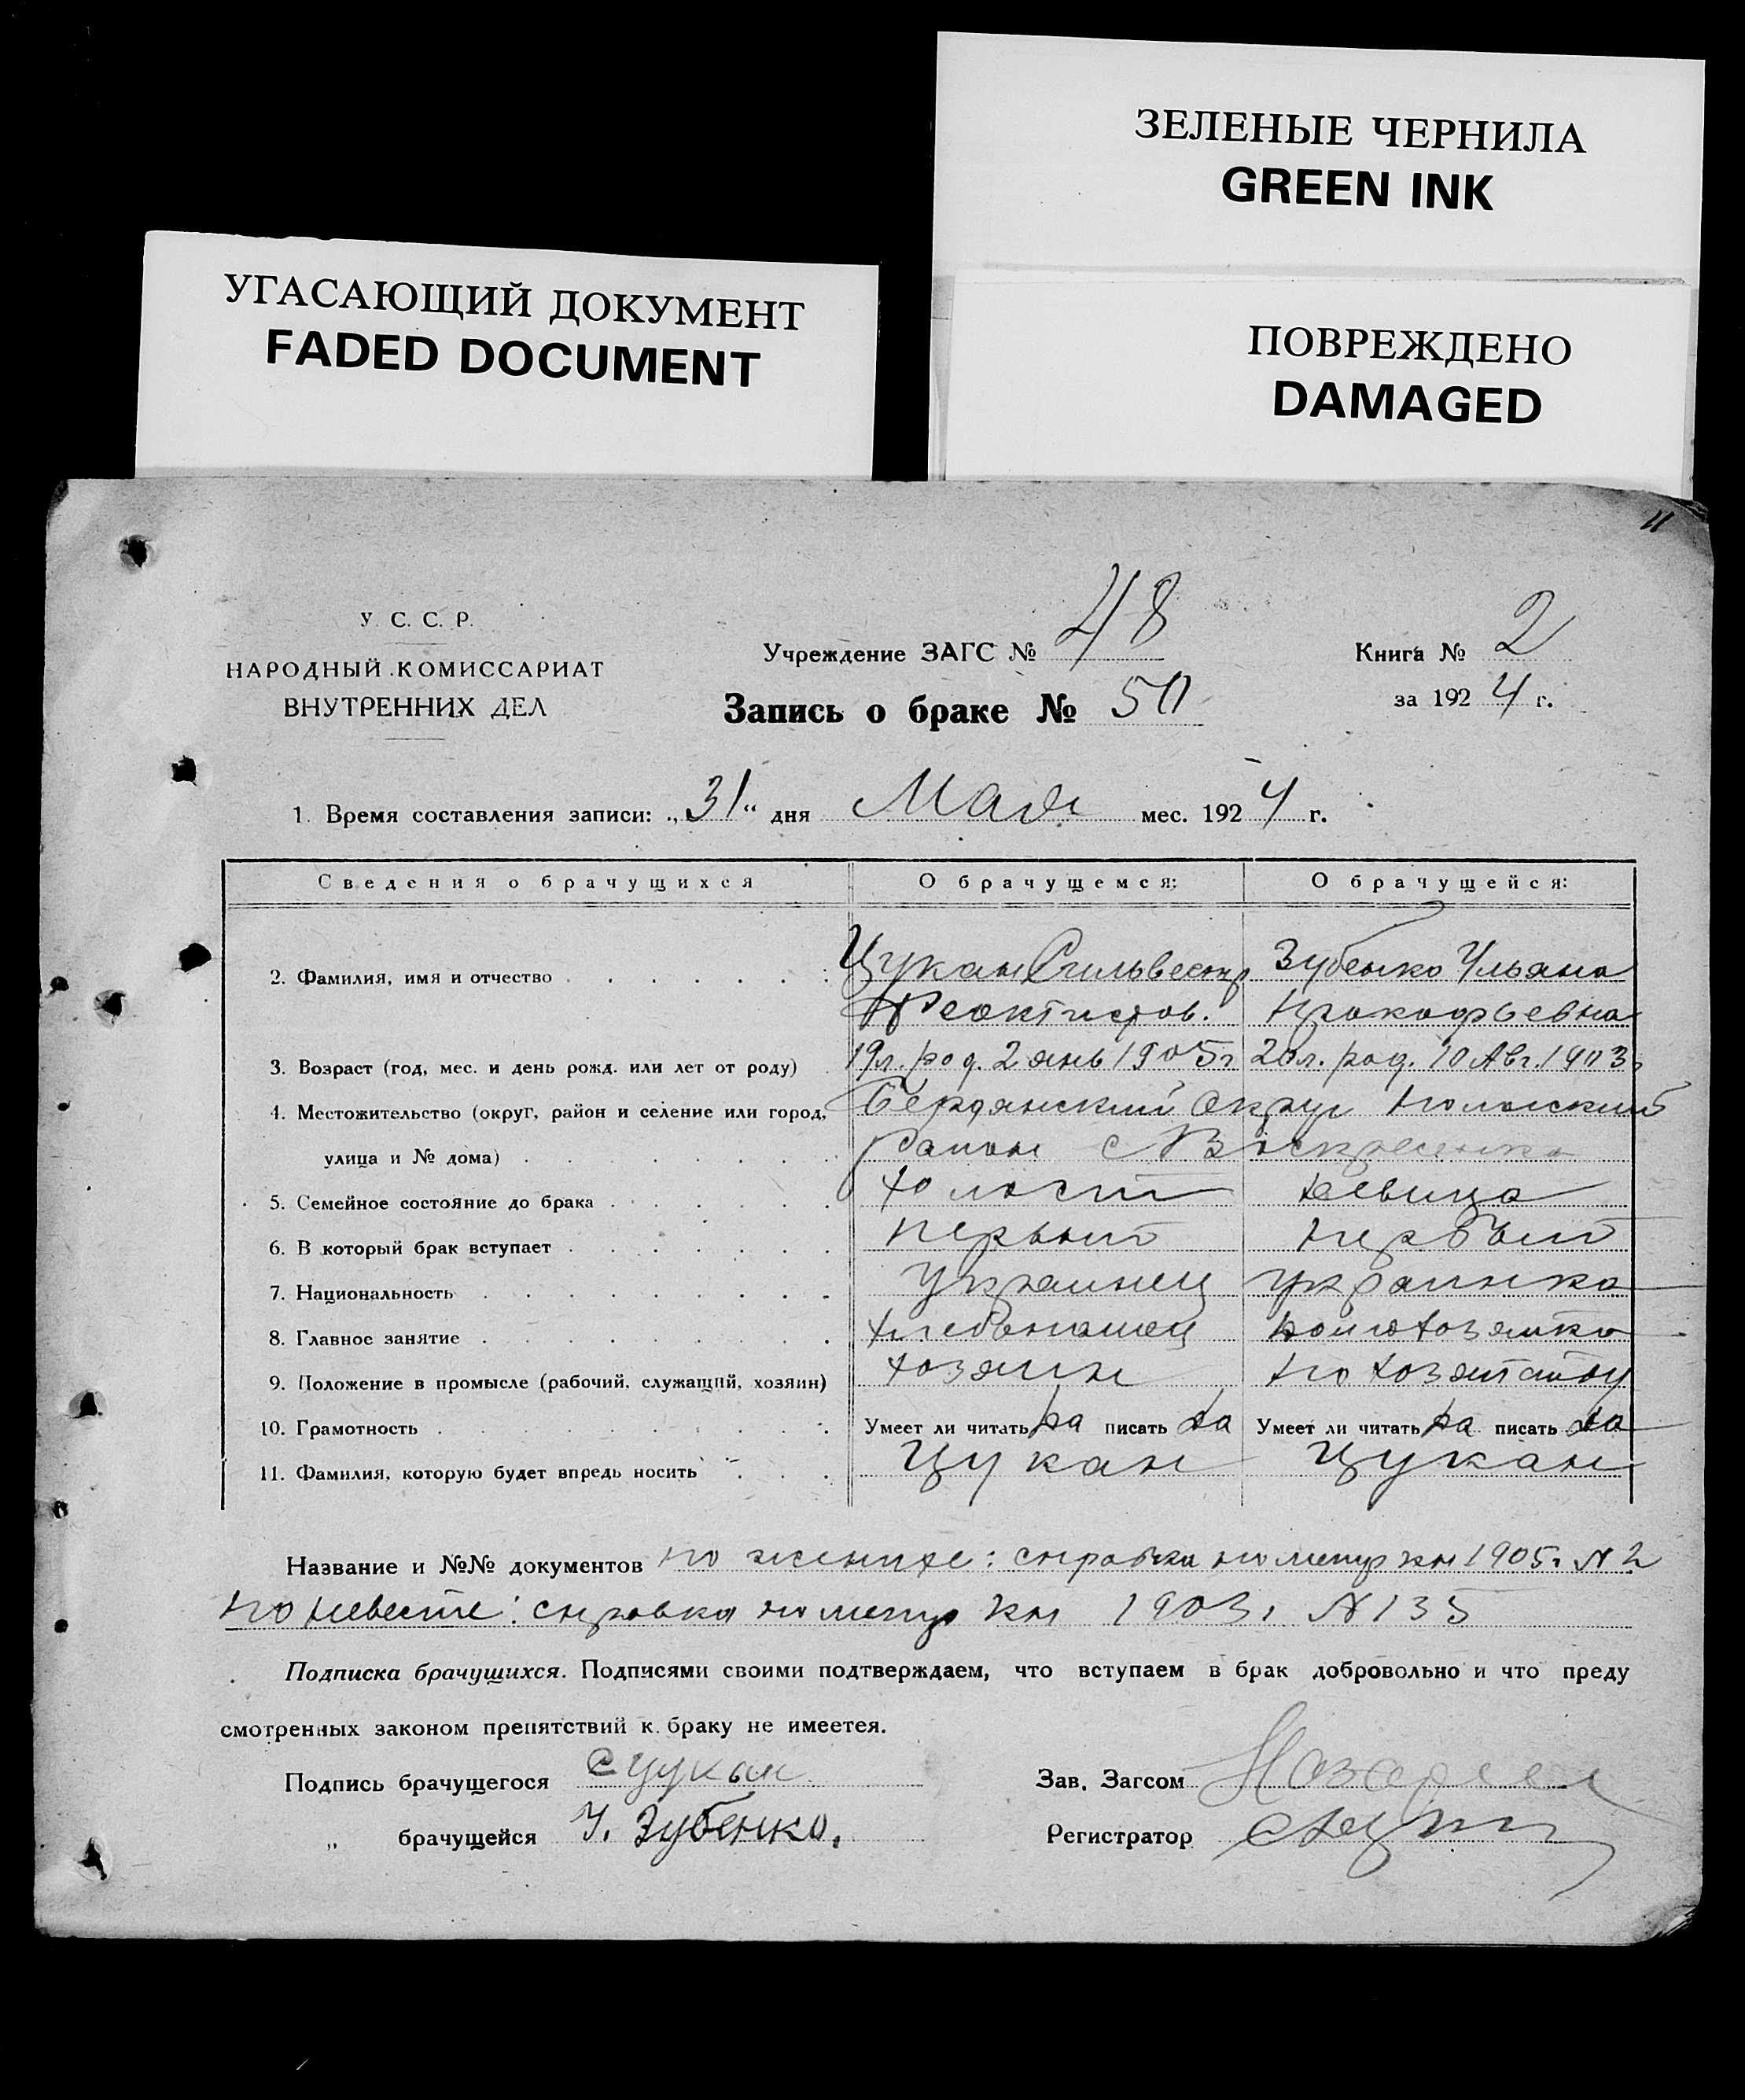 ЗЕЛЕНЫЕ ЧЕРНИЛА
GREEN INK
УГАСАЮЩИЙ ДОКУМЕНТ
FADED DOCUMENT
ПОВРЕЖДЕНО
DAMAGED
У. С. С. Р.
НАРОДНЫЙ КОМИССАРИАТ
ВНУТРЕННИХ ДЕЛ
Учреждение ЗАГС № 48
Книга № 2
Запись о браке № 50
за 1924 г.
1. Время составления записи: „31“ дня Мая мес. 1924 г.
Сведения о брачущихся О брачущемся: О брачущейся:
2. Фамилия, имя и отчество Цукан Сильвестр Зубенко Ульяна
Феоктистов. Прокофьевна
3. Возраст (год, мес. и день рожд. или лет от роду) 19л. род. 2 янв 1905г 20л. род. 10 Авг. 1903г
4. Местожительство (округ, район и селение или город, Бердянский Округ Пологский
улица и № дома) район с Воскресенка
5. Семейное состояние до брака холост девица
6. В который брак вступает первый первый
7. Национальность украинец украинка
8. Главное занятие хлебопашец домохозяйка
9. Положение в промысле (рабочий, служащий, хозяин) хозяин по хозяйству
10. Грамотность Умеет ли читать да писать да Умеет ли читать да писать да
11. Фамилия, которую будет впредь носить Цукан Цукан
Название и №№ документов по жениху: справка по метр кн 1905г N 2
по невесте: справка по метр кн 1903г N 135
Подписка брачущихся. Подписями своими подтверждаем, что вступаем в брак добровольно и что преду
смотренных законом препятствий к браку не имеется.
Подпись брачущегося С Цукан
Зав. Загсом
„ брачущейся У. Зубенко.
Регистратор